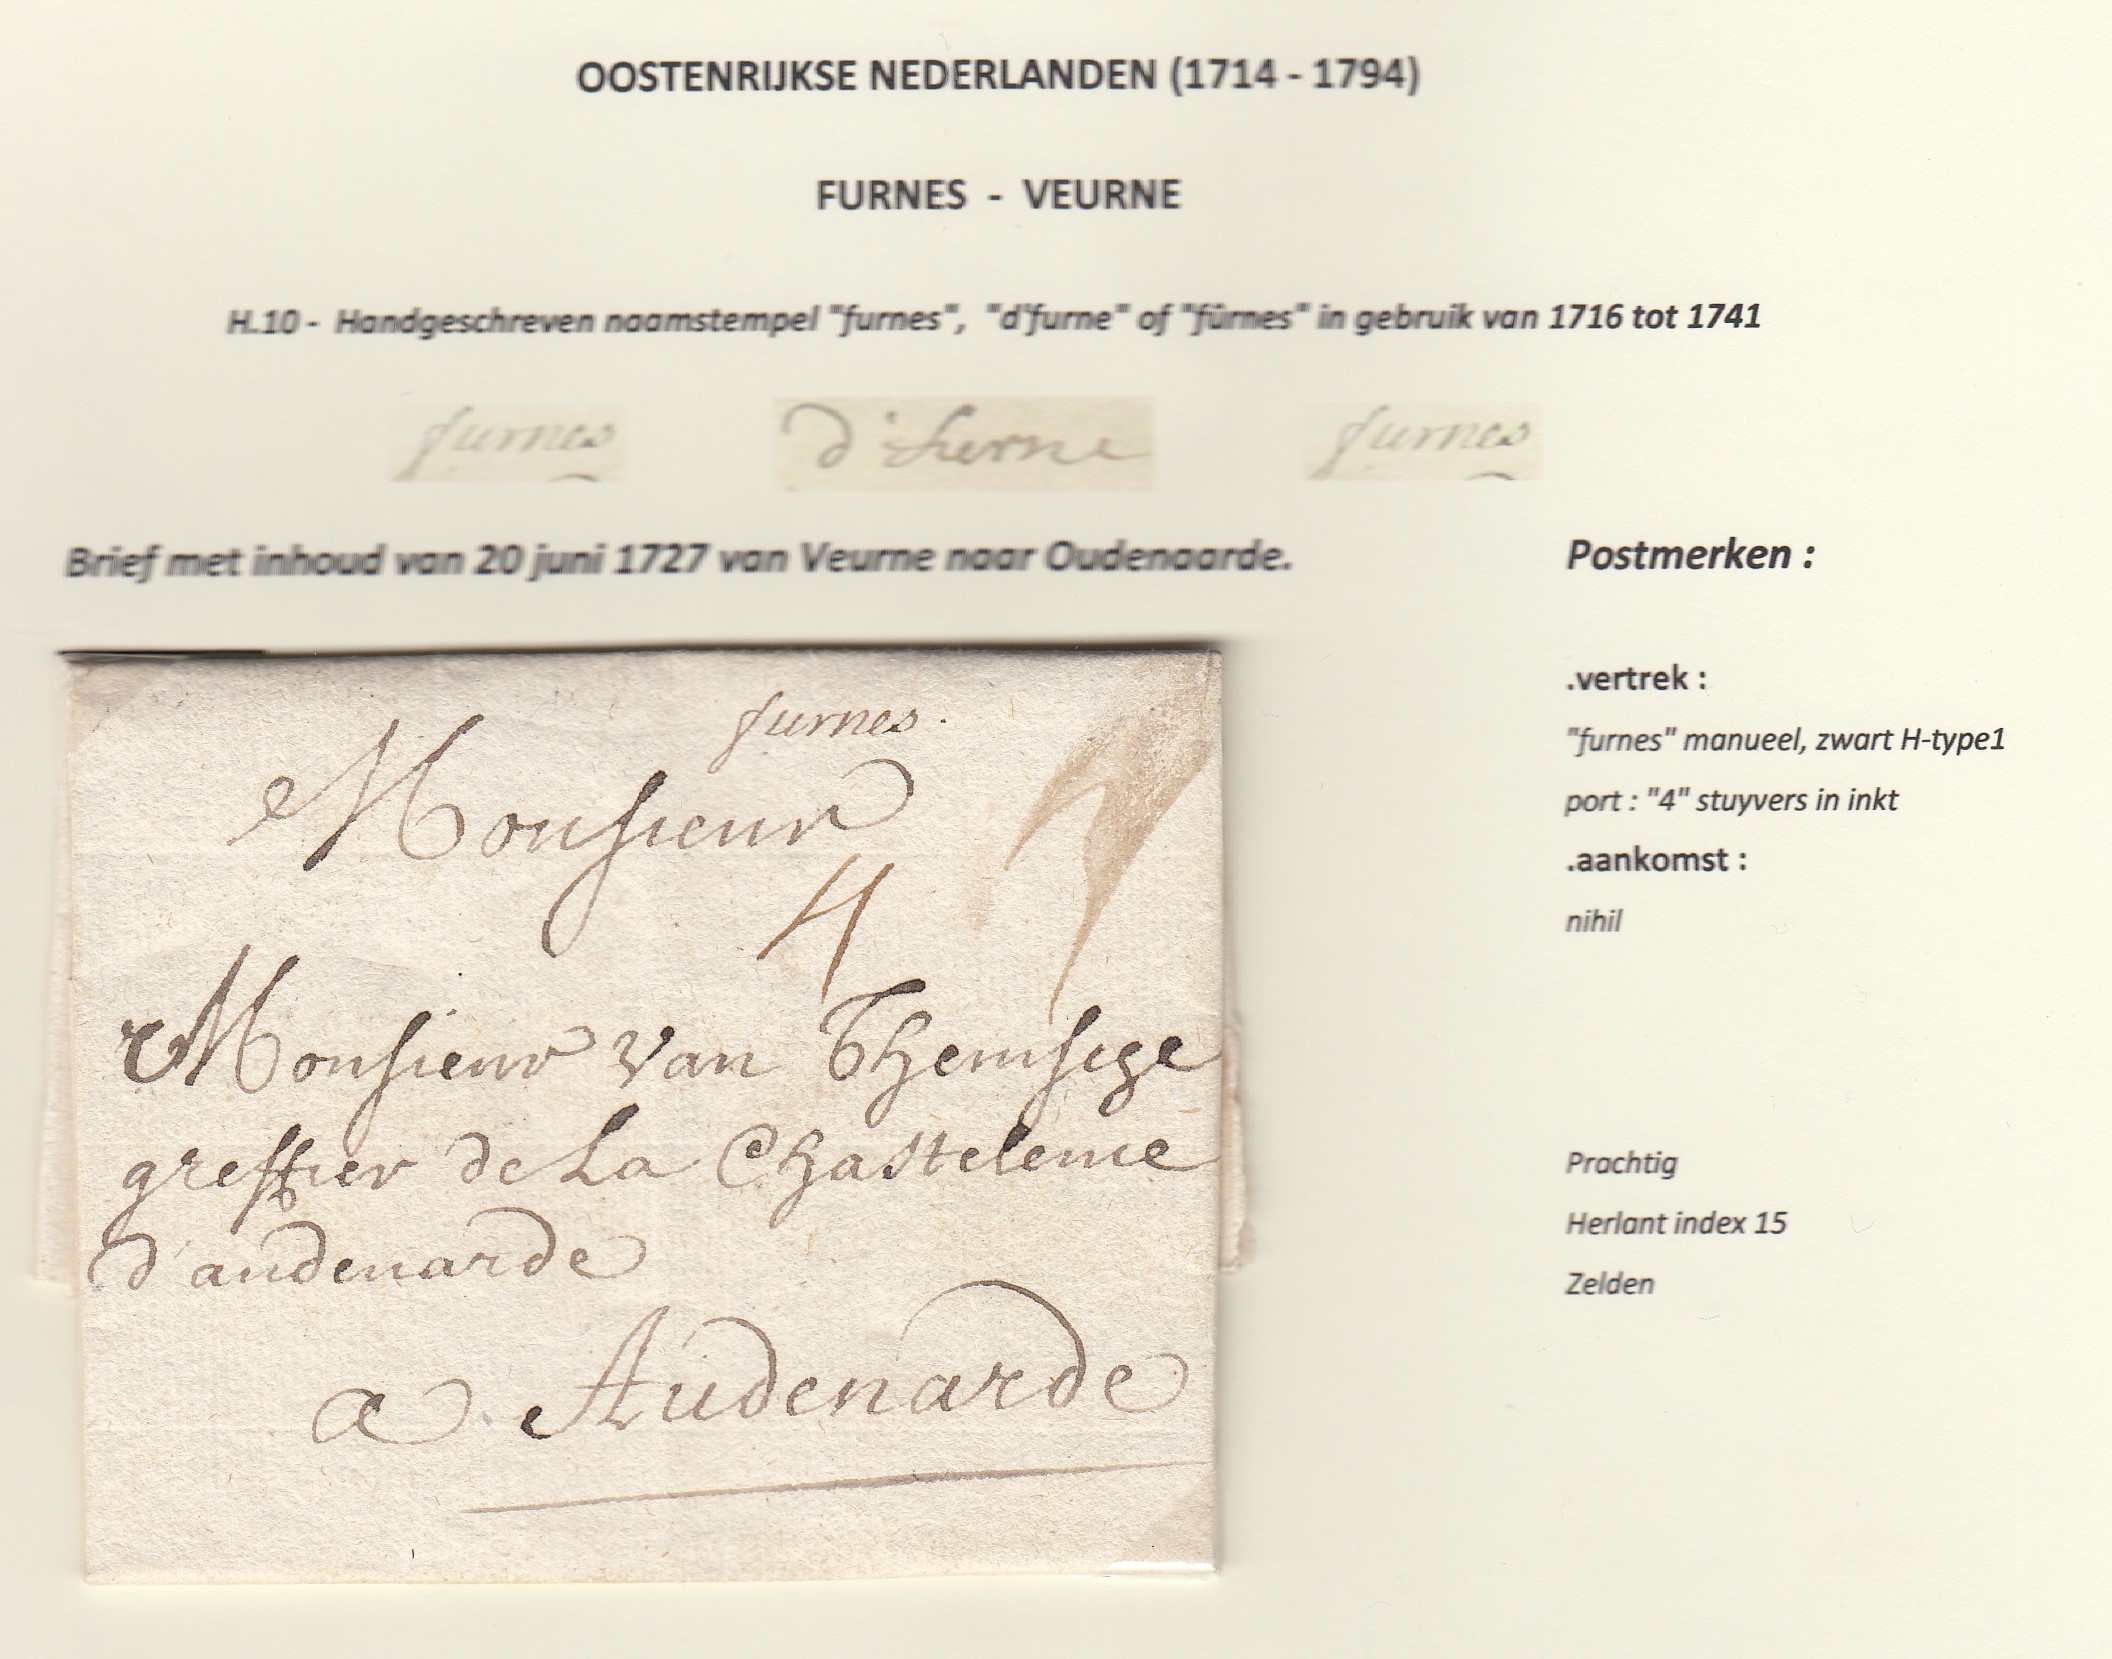 OOSTENRIJKSE NEDERLANDEN (1714 - 1794)
FURNES - VEURNE
H.10 - Handgeschreven naamstempel "furnes", "d'furne" of "fûrnes" in gebruik van 1716 tot 1741
furnes d'furne furnes
Brief met inhoud van 20 juni 1727 van Veurne naar Oudenaarde.
furnes.
Monsieur
4
Monsieur van Themsige
greffier de La Chastelenie
d'audenarde
a Audenarde
Postmerken :
.vertrek :
"furnes" manueel, zwart H-type1
port : "4" stuyvers in inkt
.aankomst :
nihil
Prachtig
Herlant index 15
Zelden